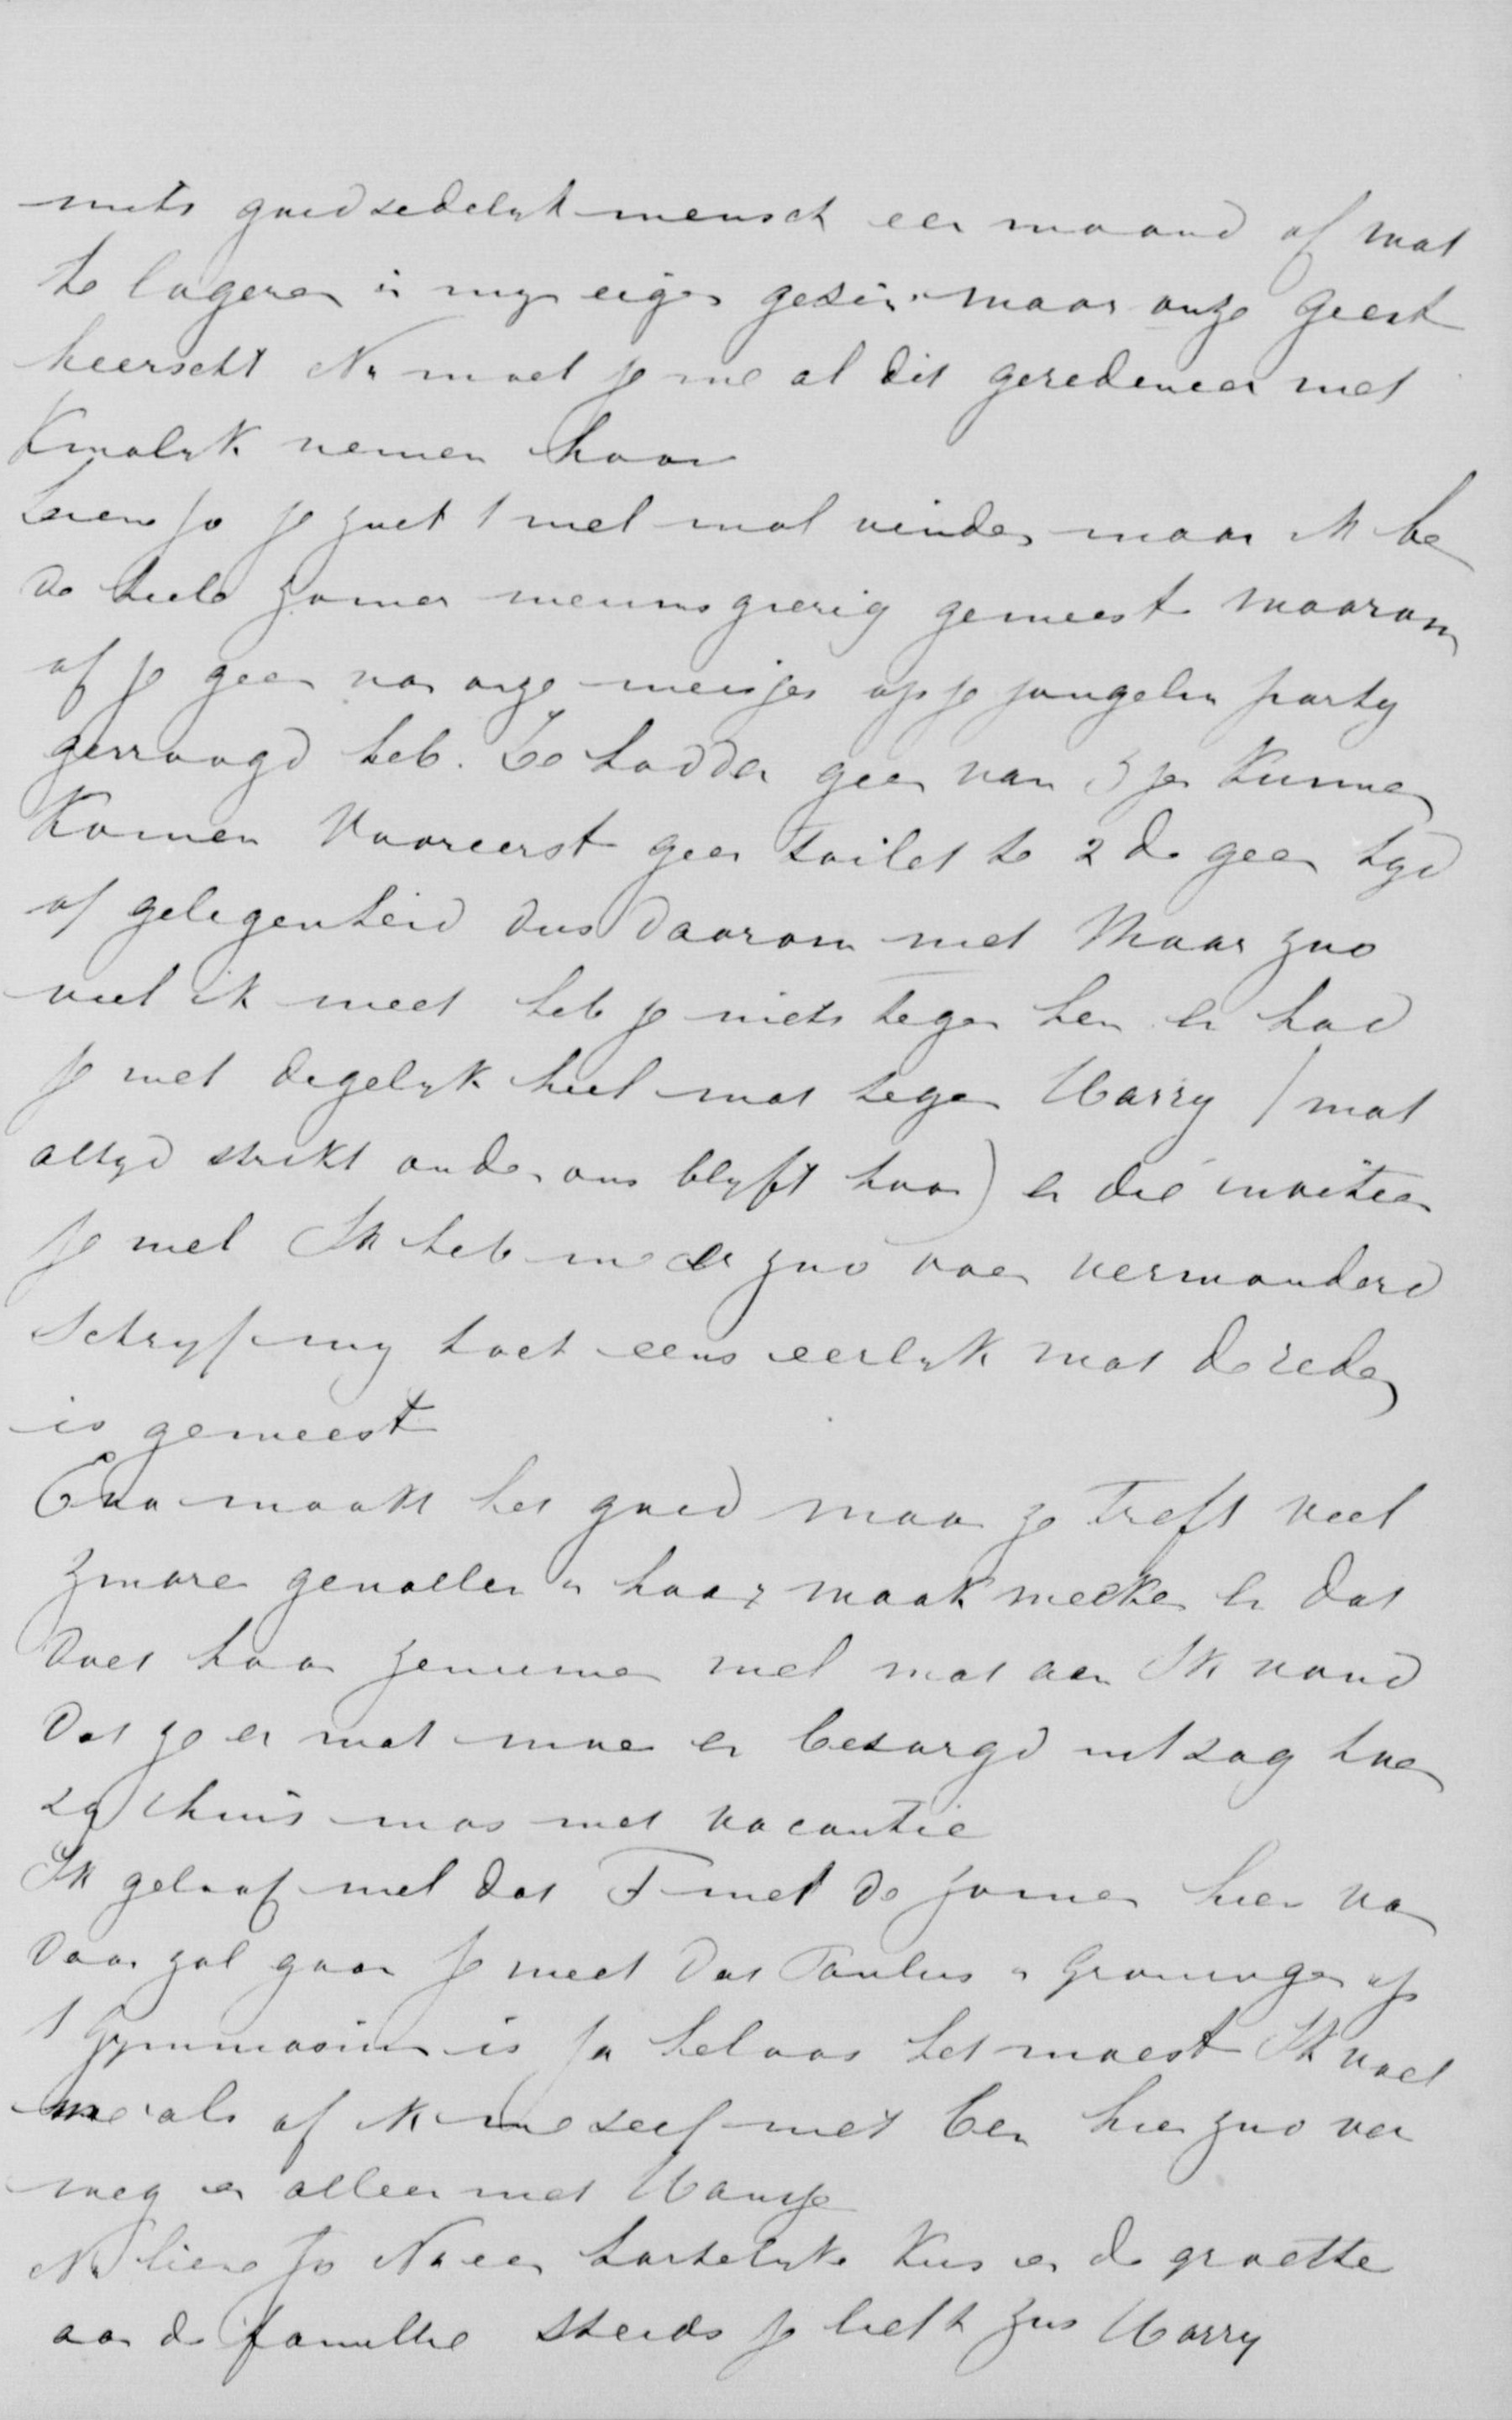 niets goed zedelyk mensch een maand of wat
te logeren in myn eigen gezin. maar onze geest
heerscht Nu moet je me al dit geredeneer niet
Kwalyk nemen hoor
Lieve Jo je zult 't wel mal vinden maar ik be
de heele zomer nieuwsgierig geweest waarom
of je geen van onze meisjes op je jongelui party
gevraagd heb. Ze hadden geen van 3 je Kunnen
Komen Vooreerst geen toilet te 2de geen tyd
of gelegenheid dus daarom niet Maar zoo
veel ik weet heb je niets tegen hen en had
je wel degelyk heel wat tegen Harry (wat
altyd strikt onder ons blyft hoor) en die inviteer
je wel Ik heb me er zoo over verwonderd
Schryf my toch eens eerlyk wat de reden
is geweest
Eva maakt het goed maar ze treft veel
zware gevallen in haar waak weeken en dat
doet haar zenuwen wel wat aan Ik vond
dat ze er wat moe en bezorgd uitzag toen
zy thuis was met vacantie
Ik geloof wel dat F met de zomer hier van
daan zal gaan Je weet dat Paulus in Groningen op
't Gymnasium is Ja helaas het moest Ik voel
me als of ik me zelf niet ben hier zoo ver
weg en alleen met Hansje
Nu lieve Jo Nu een hartelyke Kus en de groette
aan de familie steeds je liefh zus Harry